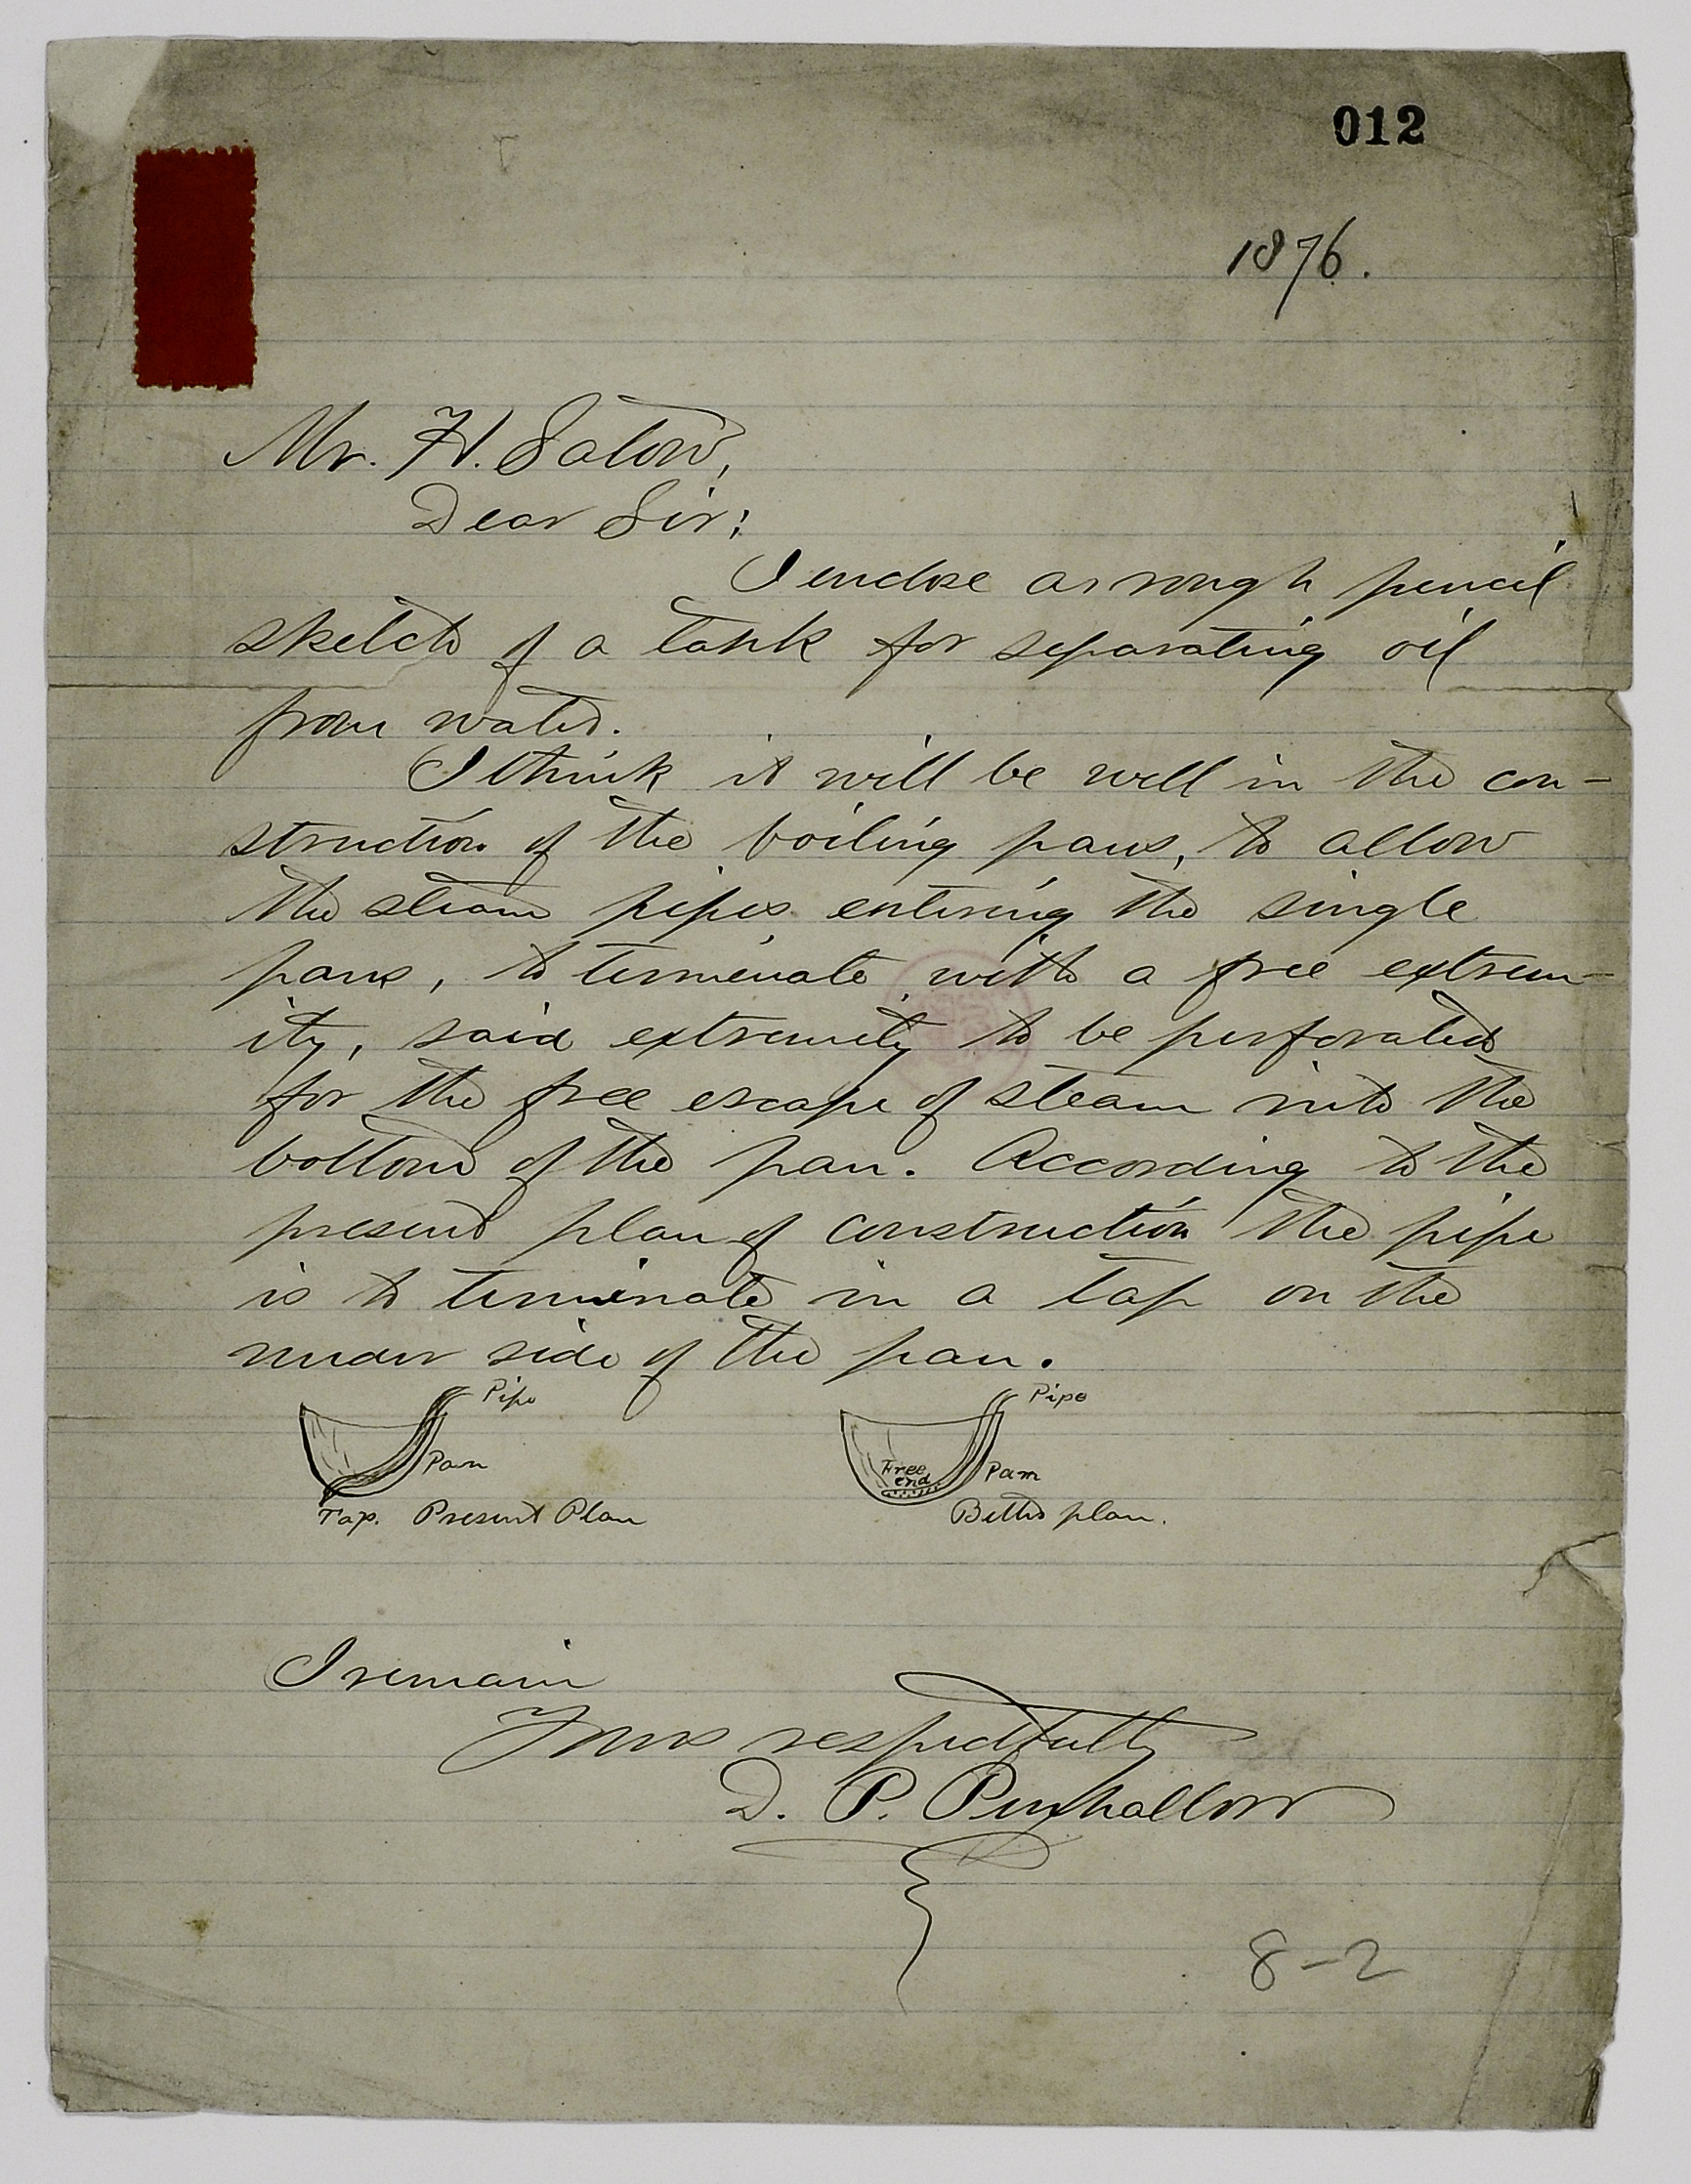 012
1876.
Mr. H. Satow,
Dear Sir:
I enclose a rough pencil
sketch of a tank for separating oil
from water.
I think it will be well in the con-
struction of the boiling pans, to allow
the steam pipes entering the single
pans, to terminate with a free extrem-
ity, said extremity to be perforated
for the free escape of steam into the
bottom of the pan. According to the
present plan of construction the pipe
is to terminate in a tap on the
under side of the pan.
Pipe
Pan
Tap. Present Plan
Pipe
Free
end
Pan
Better plan.
I remain
Yours respectfully
D. P. Penhallow
8-2